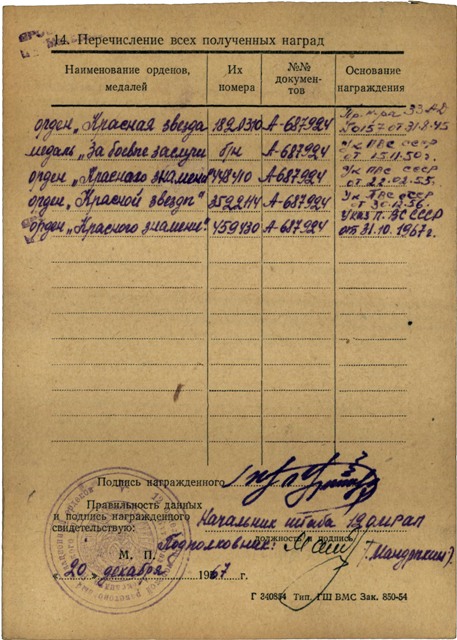 14. Перечисление всех полученных наград
Наименование орденов, медалей
Их номера
№№ документов
Основание награждения
орден „Красная звезда 1828370 А-687924 33 АД
№ 0157 от 31-8-45
медаль „За боевые заслуги б/н А-687924 Ук ПВС СССР
от 15.11.50г.
орден „Красного знамени" 448410 А-687924 Ук ПВС СССР
от 22.02.55.
орден „Красной звезды" 3592114 А-687924 Ук ПВС СССР
от 30.12.56.
орден „Красного знамени". 459430 А-687924 Указ П. ВС СССР
от 31.10.1967г.
Подпись награжденного
Правильность данных
и подпись награжденного
свидетельствую:
Начальник штаба
должность и подпись
Подполковник:
М. П.
„20" декабря 1967 г.
Г 240834 Тип. ГШ ВМС Зак. 850-54